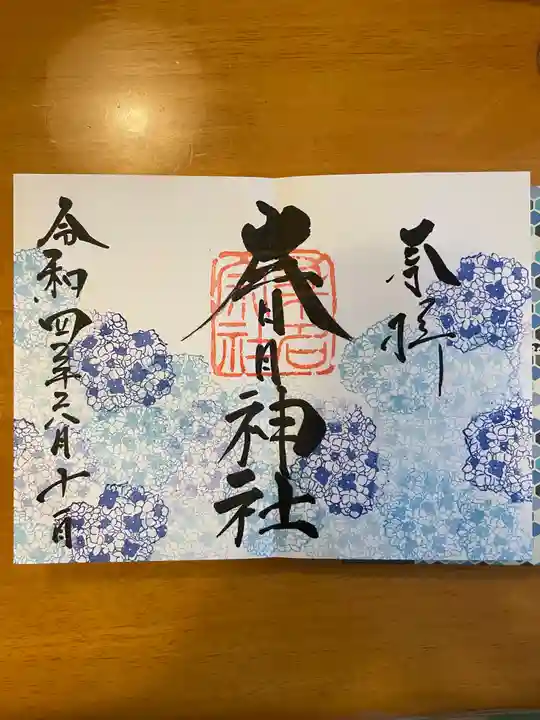 奉拝
春日神社
令和四年六月十日